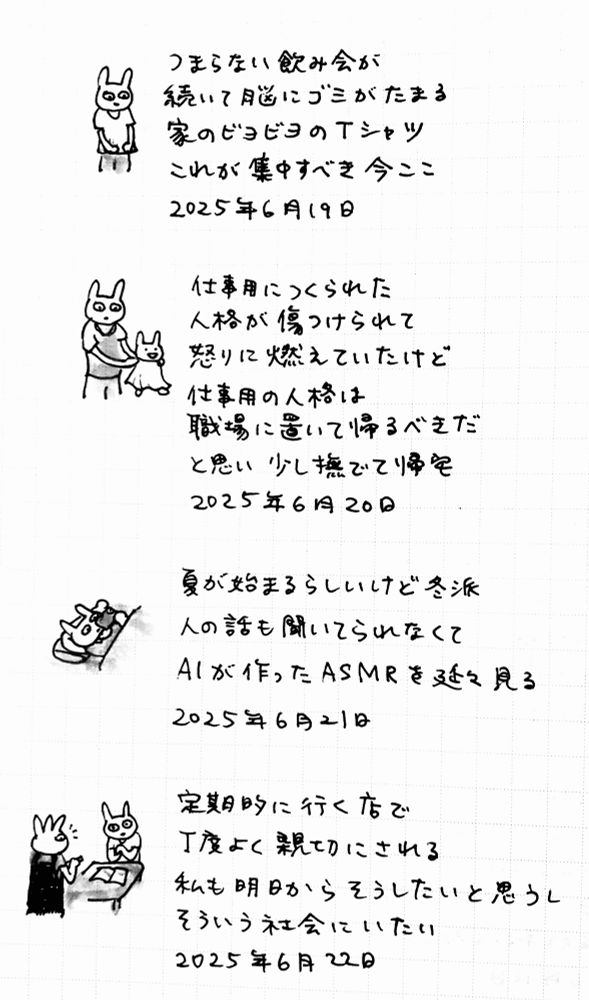 つまらない飲み会が
続いて脳にゴミがたまる
家のビヨビヨのTシャツ
これが集中すべき今ここ
2025年6月19日
仕事用につくられた
人格が傷つけられて
怒りに燃えていたけど
仕事用の人格は
職場に置いて帰るべきだ
と思い 少し撫でて帰宅
2025年6月20日
夏が始まるらしいけど冬派
人の話も聞いてられなくて
AIが作ったASMRを延々見る
2025年6月21日
定期的に行く店で
丁度よく親切にされる
私も明日からそうしたいと思うし
そういう社会にいたい
2025年6月22日